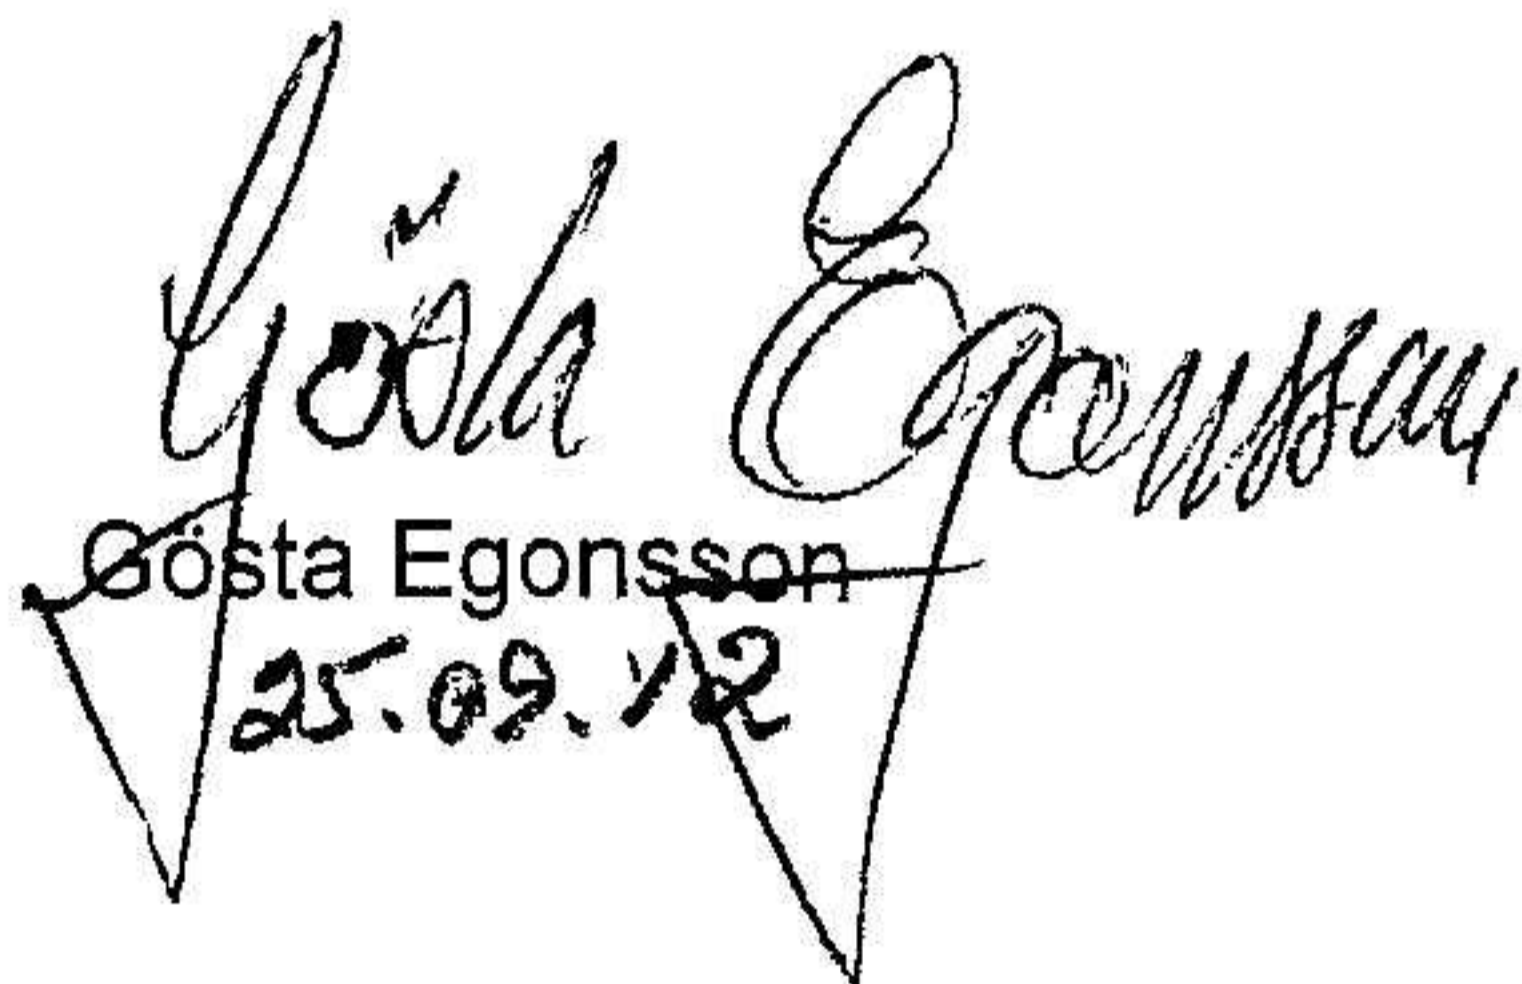 Gösta Egonsson
Gösta Egonsson
25.09.12